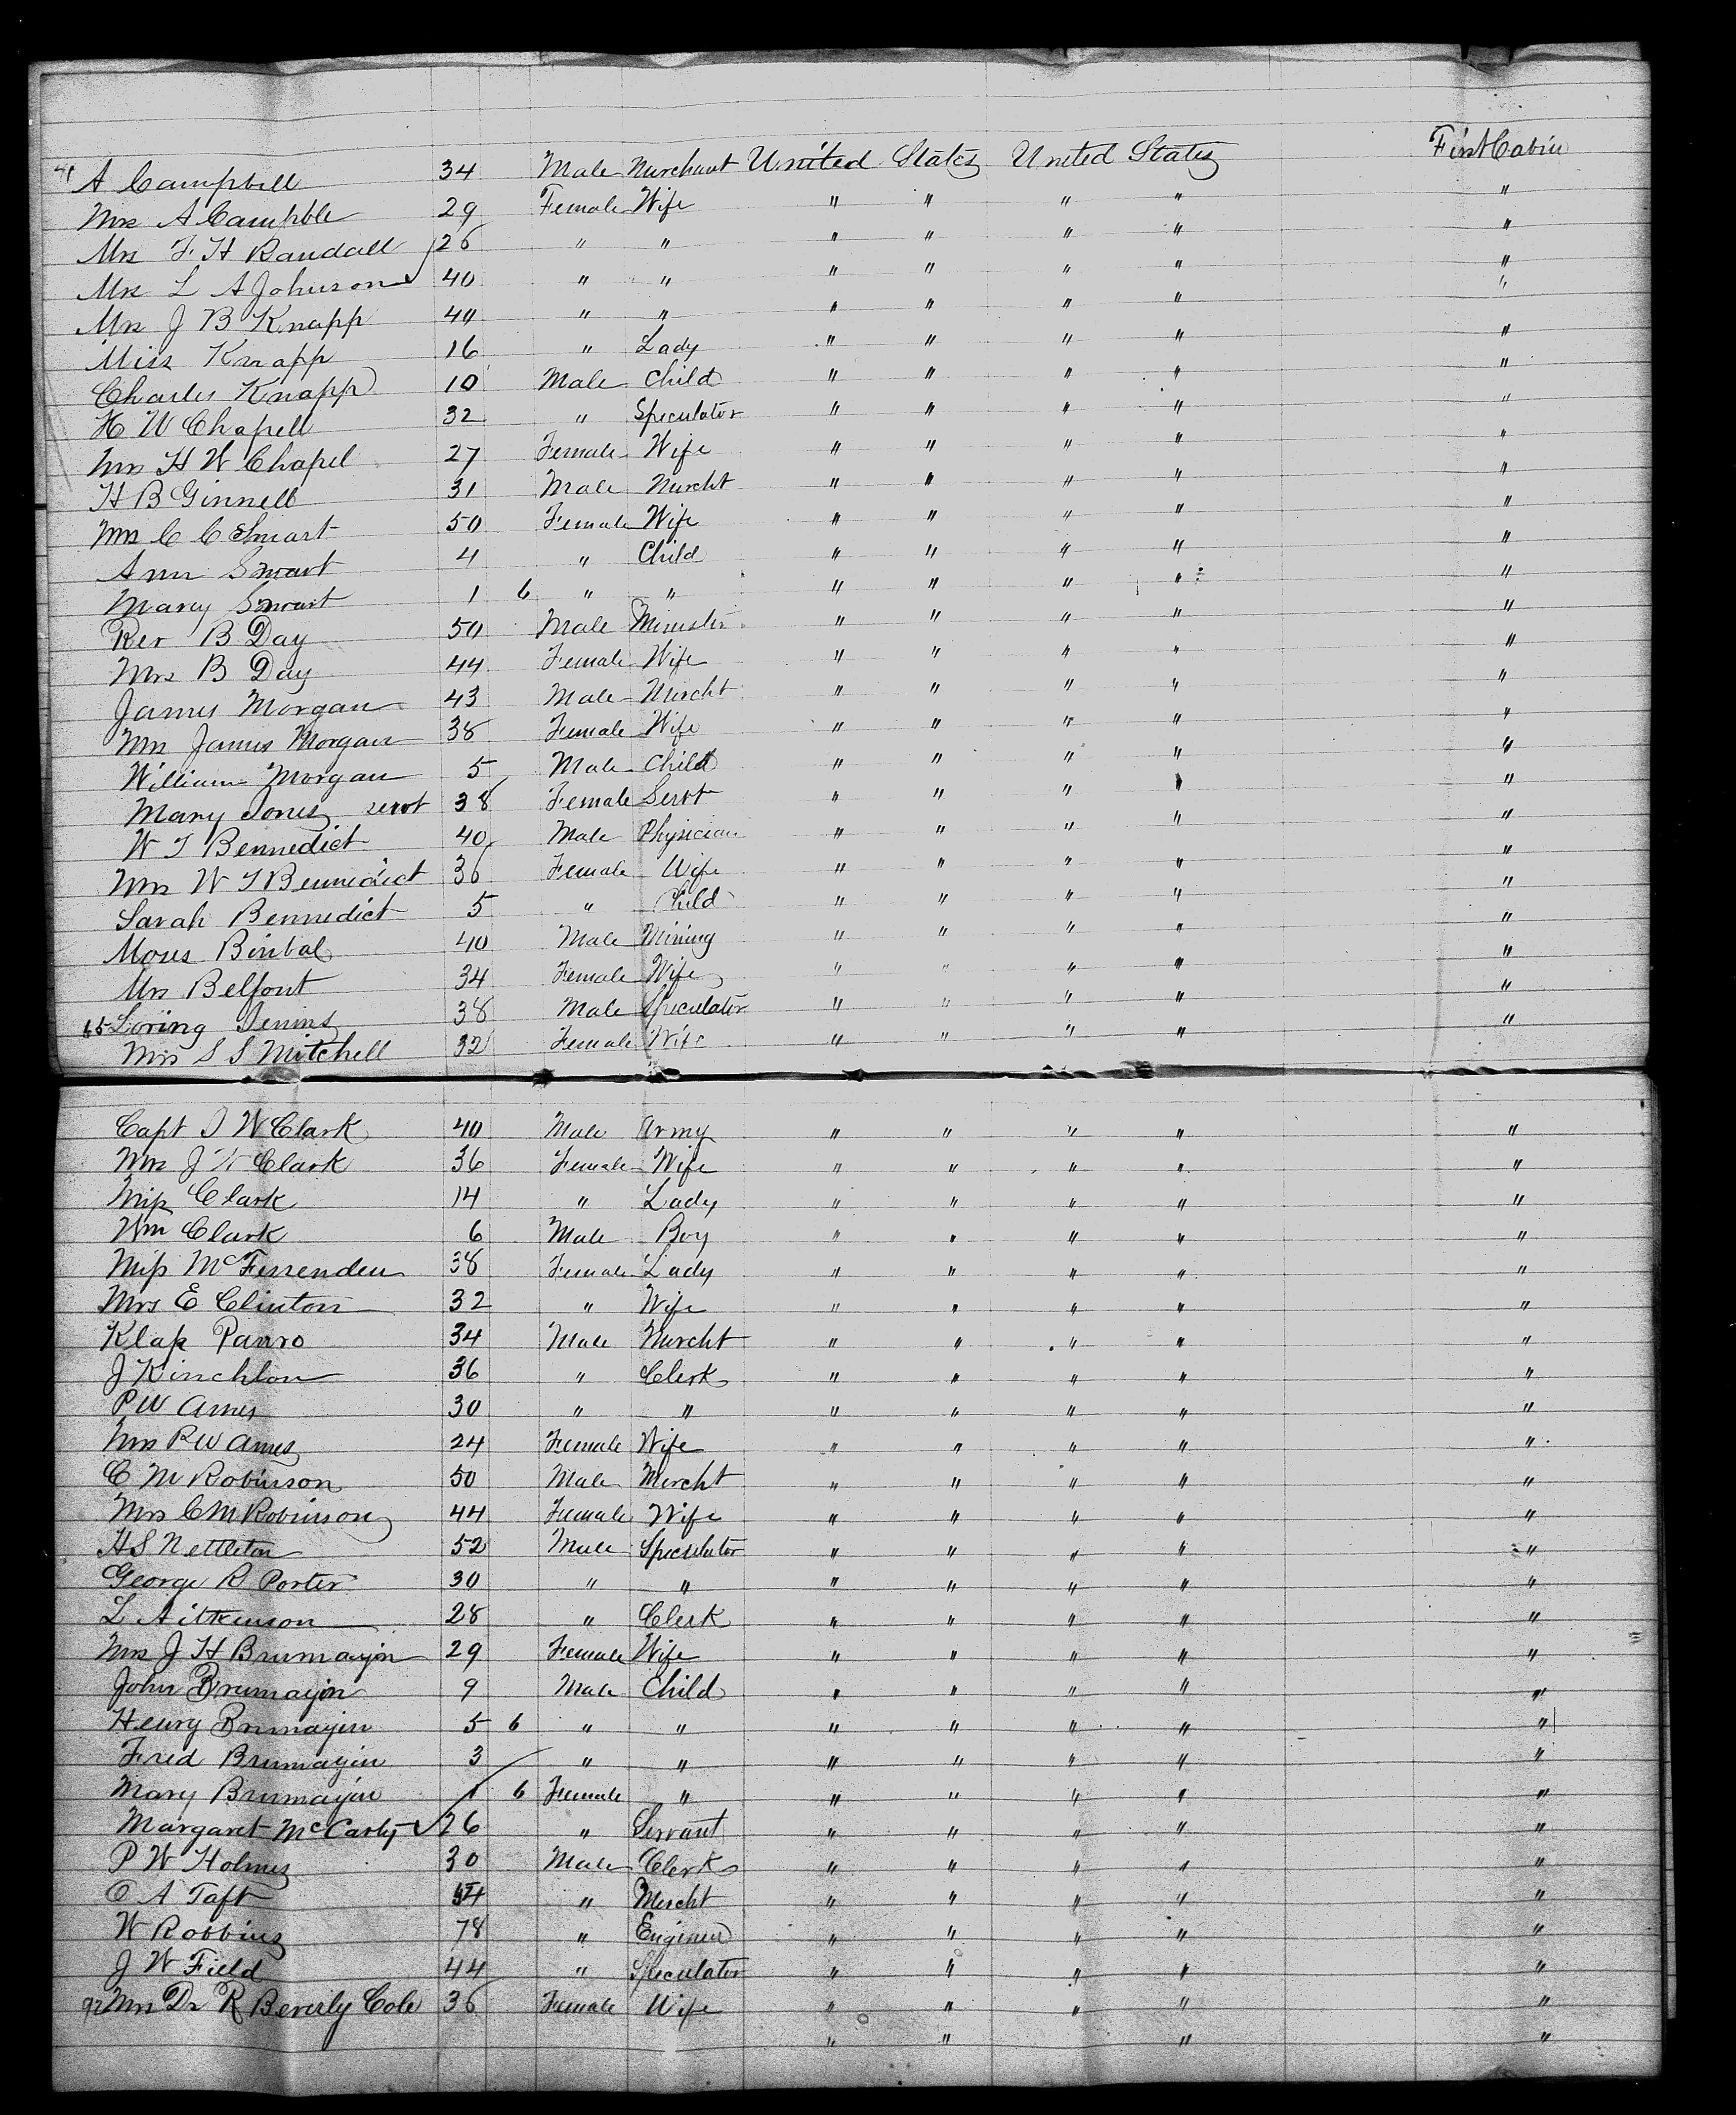 41 A Campbell 34 Male Merchant United States United States First Cabin
Mrs A Campble 29 Female Wife " " " " "
Mrs F H Randall 26 " " " " " " "
Mrs L A Johnson 40 " " " " " " "
Mrs J B Knapp 40 " " " " " " "
Miss Knapp 16 " Lady " " " " "
Charles Knapp 10 Male Child " " " " "
H W Chapell 32 " Speculator " " " " "
Mrs H W Chapel 27 Female Wife " " " " "
H B Ginnell 31 Male Mercht " " " " "
Mrs C C Smart 50 Female Wife " " " " "
Ann Smart 4 " Child " " " " "
Mary Smart 1 6 " " " " " " "
Rev B Day 50 Male Minister " " " " "
Mrs B Day 44 Female Wife " " " " "
James Morgan 43 Male Mercht " " " " "
Mrs James Morgan 38 Female Wife " " " " "
William Morgan 5 Male Child " " " " "
Mary Jones servt 38 Female Servt " " " " "
W T Bennedict 40 Male Physician " " " " "
Mrs W T Bennedict 36 Female Wife " " " " "
Sarah Bennedict 5 " Child " " " " "
Moses 40 Male Mining " " " " "
Mrs Belfont 34 Female Wife " " " " "
65 Loring 38 Male Speculator " " " " "
Mrs S S Mitchell 32 Female Wife " " " " "
Capt J W Clark 40 Male Army " " " " "
Mrs J W Clark 36 Female Wife " " " " "
Miss Clark 14 " Lady " " " " "
Wm Clark 6 Male Boy " " " " "
Miss McFessenden 38 Female Lady " " " " "
Mrs E Clinton 32 " Wife " " " " "
34 Male Mercht " " " " "
J Kinchlon 36 " Clerk " " " " "
P W Ames 30 " " " " " " "
Mrs P W Ames 24 Female Wife " " " " "
C M Robinson 50 Male Mercht " " " " "
Mrs C M Robinson 44 Female Wife " " " " "
H S Nettleton 52 Male Speculator " " " " "
George R Porter 30 " " " " " " "
L Aitkenson 28 " Clerk " " " " "
Mrs J H Brumagin 29 Female Wife " " " " "
John Brumagin 9 Male Child " " " " "
Henry Brumagin 5 6 " " " " " " "
Fred Brumagin 3 " " " " " " "
Mary Brumagin 1 6 Female " " " " " "
Margaret McCarty 26 " Servant " " " " "
P W Holmes 30 Male Clerk " " " " "
O A Taft 54 " Mercht " " " " "
W Robbins 78 " Engineer " " " " "
J W Field 44 " Speculator " " " " "
92 Mrs Dr R Beverly Cole 36 Female Wife " " " " "
" " " "